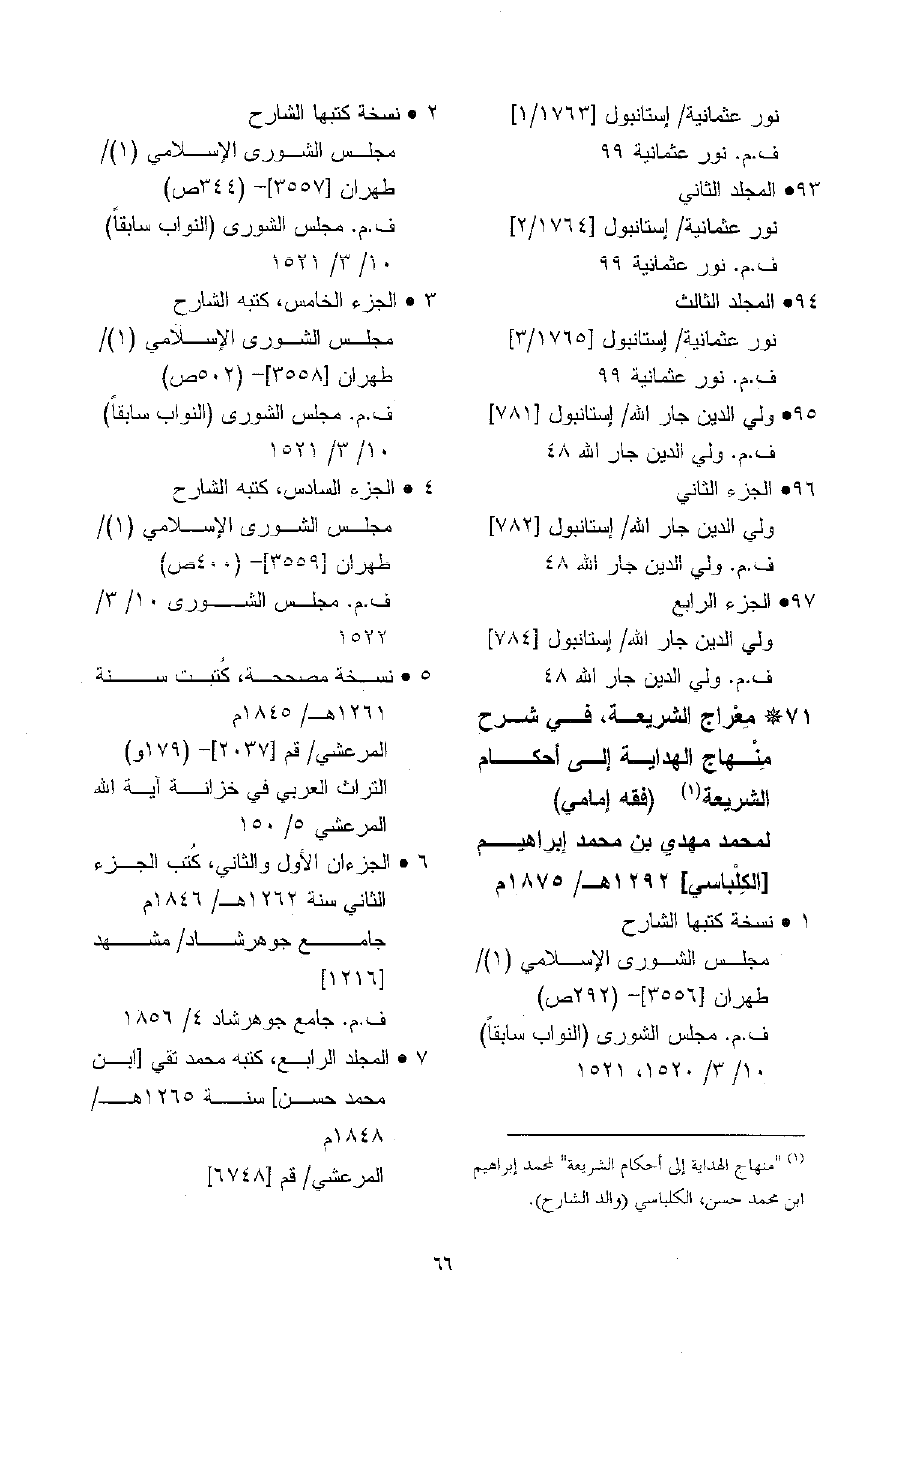 نور عثمانية/ إستانبول [١/١٧٦٣]
ف.م. نور عثمانية ٩٩
٩٣• المجلد الثاني
نور عثمانية/ إستانبول [٢/١٧٦٤]
ف.م. نور عثمانية ٩٩
٩٤• المجلد الثالث
نور عثمانية/ إستانبول [٣/١٧٦٥]
ف.م. نور عثمانية ٩٩
٩٥• ولي الدين جار الله/ إستانبول [٧٨١]
ف.م. ولي الدين جار الله ٤٨
٩٦• الجزء الثاني
ولي الدين جار الله/ إستانبول [٧٨٢]
ف.م. ولي الدين جار الله ٤٨
٩٧• الجزء الرابع
ولي الدين جار الله/ إستانبول [٧٨٤]
ف.م. ولي الدين جار الله ٤٨
٧١* مِعْراج الشريعة، في شرح
مِنْهاج الهداية إلى أحكام
الشريعة(١) (فقه إمامي)
لمحمد مهدي بن محمد إبراهيم
[الكِلْباسي] ١٢٩٢هـ/ ١٨٧٥م
١ • نسخة كتبها الشارح
مجلس الشورى الإسلامي (١)/
طهران [٣٥٥٦]- (٢٩٢ص)
ف.م. مجلس الشورى (النواب سابقاً)
١٠/ ٣/ ١٥٢٠، ١٥٢١
(١) "منهاج الهداية إلى أحكام الشريعة" لمحمد إبراهيم
ابن محمد حسن، الكلباسي (والد الشارح).
٢ • نسخة كتبها الشارح
مجلس الشورى الإسلامي (١)/
طهران [٣٥٥٧]- (٣٤٤ص)
ف.م. مجلس الشورى (النواب سابقاً)
١٠/ ٣/ ١٥٢١
٣ • الجزء الخامس، كتبه الشارح
مجلس الشورى الإسلامي (١)/
طهران [٣٥٥٨]- (٥٠٢ص)
ف.م. مجلس الشورى (النواب سابقاً)
١٠/ ٣/ ١٥٢١
٤ • الجزء السادس، كتبه الشارح
مجلس الشورى الإسلامي (١)/
طهران [٣٥٥٩]- (٤٠٠ص)
ف.م. مجلس الشورى ١٠/ ٣/
١٥٢٢
٥ • نسخة مصححة، كُتبت سنة
١٢٦١هـ/ ١٨٤٥م
المرعشي/ قم [٢٠٣٧]- (١٧٩و)
التراث العربي في خزانة آية الله
المرعشي ٥/ ١٥٠
٦ • الجزءان الأول والثاني، كُتب الجزء
الثاني سنة ١٢٦٢هـ/ ١٨٤٦م
جامع جوهرشاد/ مشهد
[١٢١٦]
ف.م. جامع جوهرشاد ٤/ ١٨٥٦
٧ • المجلد الرابع، كتبه محمد تقي [ابن
محمد حسن] سنة ١٢٦٥هـ/
١٨٤٨م
المرعشي/ قم [٦٧٤٨]
٦٦